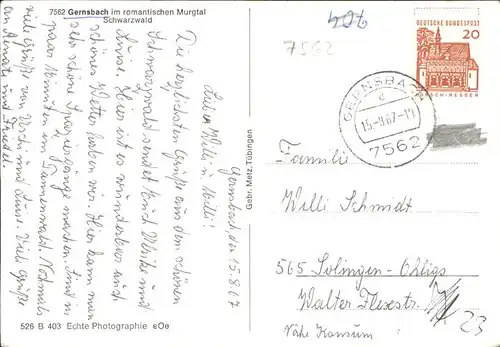 7562 Gernsbach im romantischen Murgtal
Schwarzwald
Gernsbach, den 15.8.67
Lieber Willi u. Milli!
Die herzlichsten Grüße aus dem schönen
Schwarzwald sendet Euch Ulrike und
Luise. Hier ist es wunderbar auch
schönes Wetter haben wir. Hier kann man
sehr schöne Spaziergänge machen. Sind in
paar Minuten im Tannenwald. Nochmals
viele Grüße von und Luise. Viele Grüße
an Renate und
526 B 403 Echte Photographie
Gebr. Metz, Tübingen
7562
DEUTSCHE BUNDESPOST
20
LORSCH-HESSEN
GERNSBACH
d
15-.67-19
7562
Familie
Willi Schmidt
565 Solingen-Ohligs
Walter Flexstr.
23
Nähe Konsum